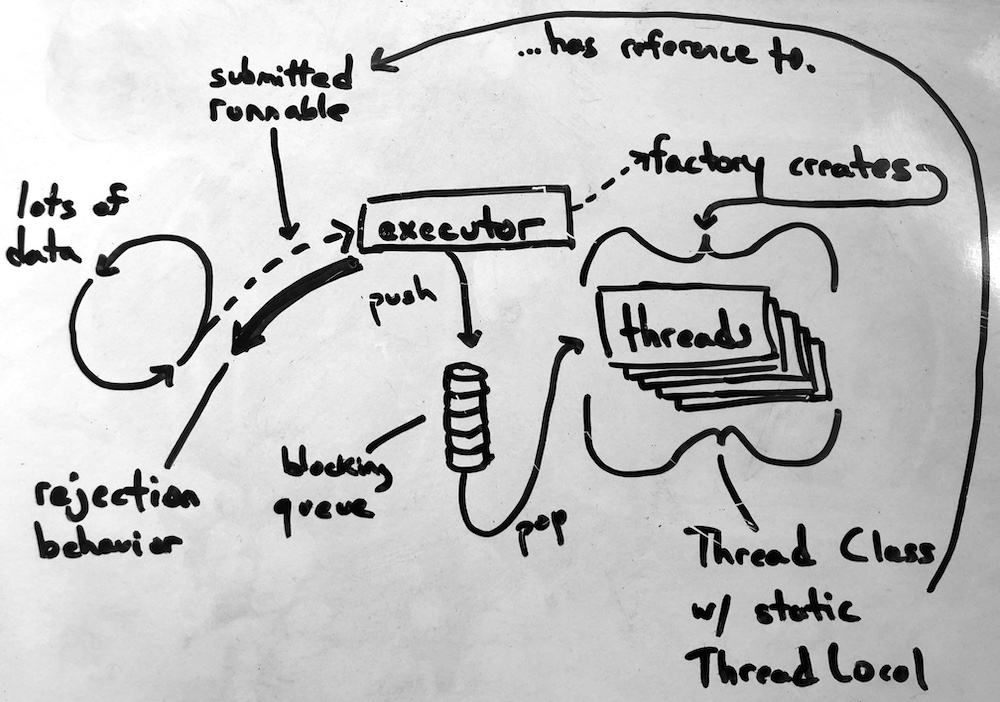 ...has reference to.
submitted
runnable
factory creates
lots of
data
executor
push
threads
blocking
queue
pop
rejection
behavior
Thread Class
w/ static
Thread Local